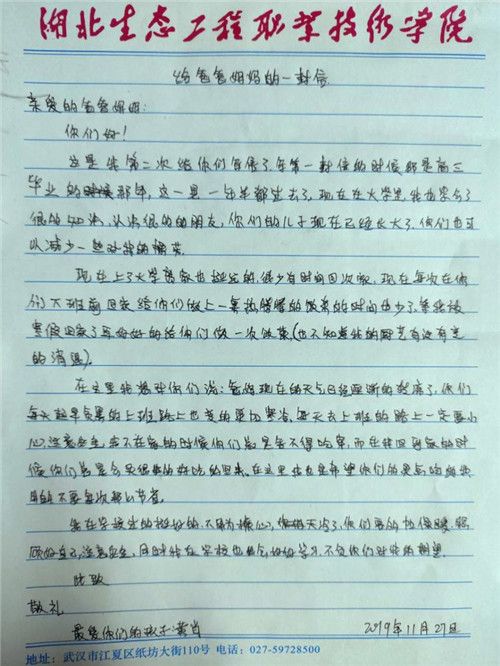 湖北生态工程职业技术学院
给爸爸妈妈的一封信
亲爱的爸爸妈妈:
你们好!
这是我第二次给你们写信了,写第一封信的时候都是高三
毕业的那年,这一晃一年半都过去了,现在在大学里我也学会了
很多知识,认识很多的朋友,你们的儿子现在已经长大了,你们也可
以减少一些对我的
现在上了大学离家也挺远的,很少有时间回次家,现在每次在你
们下班前回家给你们做上一桌热腾腾的饭菜的时间也少了,等我放
寒假回家了再好好的给你们做一次饭菜,(也不知道我的厨艺有没有变
的消退)。
在这里我想对你们说:爸妈现在的天气已经逐渐的转凉了,你们
每天起早贪黑的上班路上也变的更加寒冷,每天去上班的路上一定要小
心,注意安全,我不在家的时候你们总是舍不得吃穿,而在我回到家的时
候你们总是会买很多的好吃的回来,在这里我也是希望你们的
不要每次都么节省。
我在学校过的挺好的,不用为操心,天冷了,你们要的保暖,照
顾好自己,注意安全,同时我在学校也会好好学习,不负你们对我的期望。
此致
敬礼
最爱你们的孩子:黄肖
2019年11月27日
地址: 武汉市江夏区纸坊大街110号 电话: 027-59728500